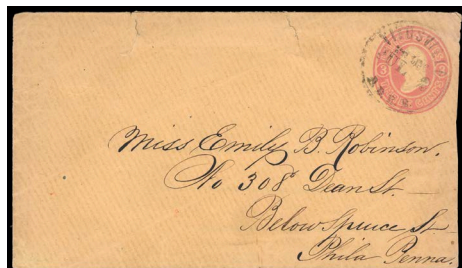 Miss Emily B. Robinson.
No 308 Dean St.
Below Spruce St
Phila Penna.